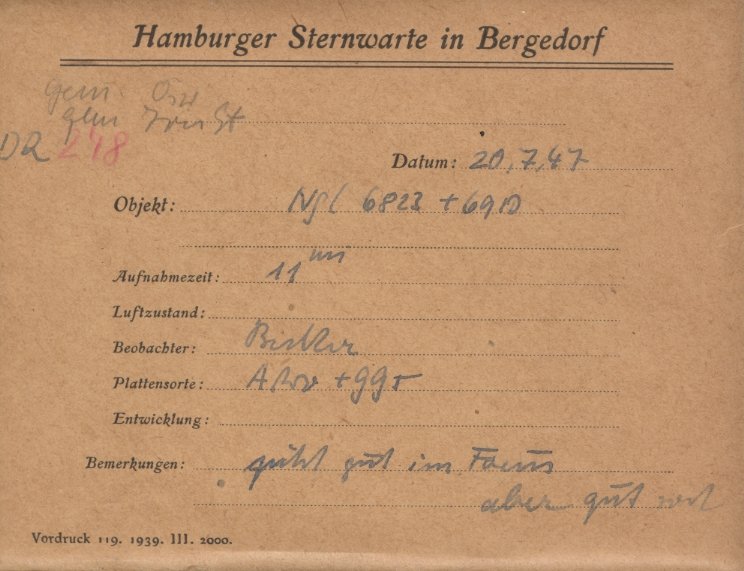 Hamburger Sternwarte in Bergedorf
gem.
DR 248
Datum: 20.7.47
Objekt: NGC 6823 + 6910
Aufnahmezeit: 11 m
Luftzustand:
Beobachter:
Plattensorte: + 99
Entwicklung:
Bemerkungen: gut im Focus
aber gut
Vordruck 119. 1939. III. 2000.